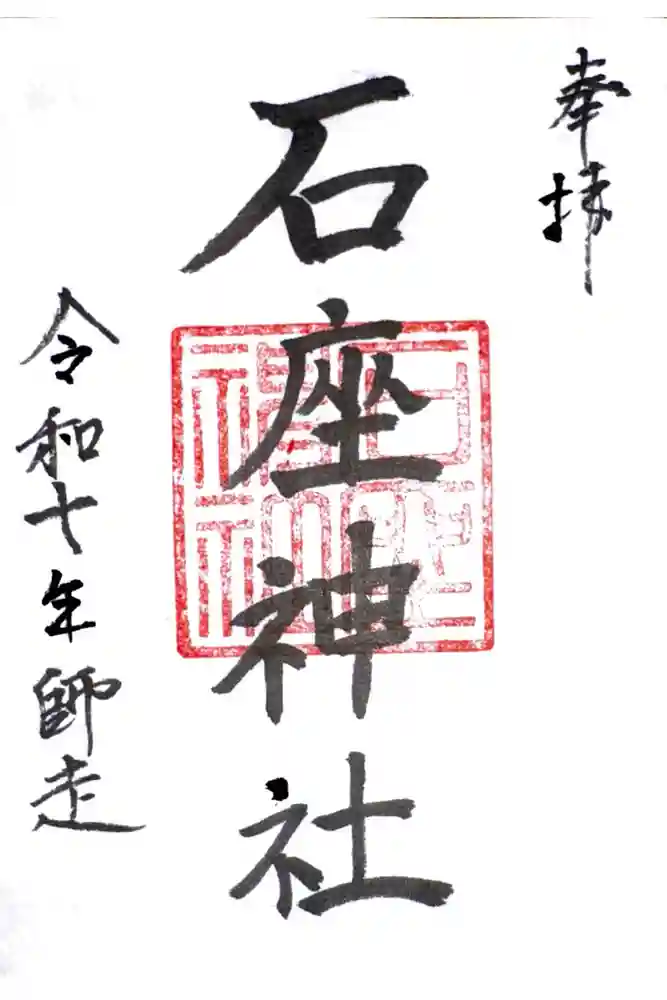 奉拝
石座神社
令和七年師走